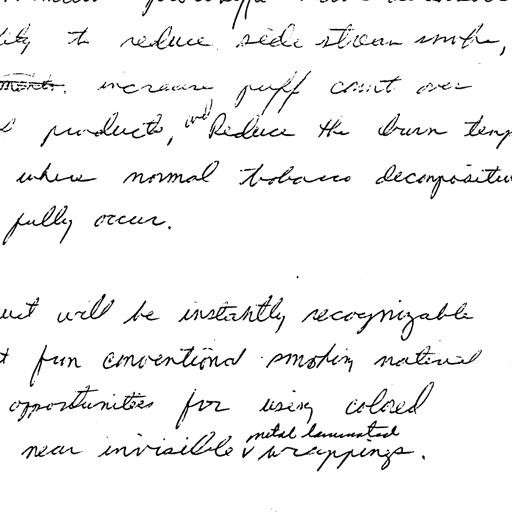 ity to reduce side stream smoke,
increase puff count over
products, and Reduce the burn temp
where normal tobacco decomposition
fully occur.
uct will be instantly recognizable
t from conventional smoking material
opportunities for using colored
near invisible metal laminated wrappings.